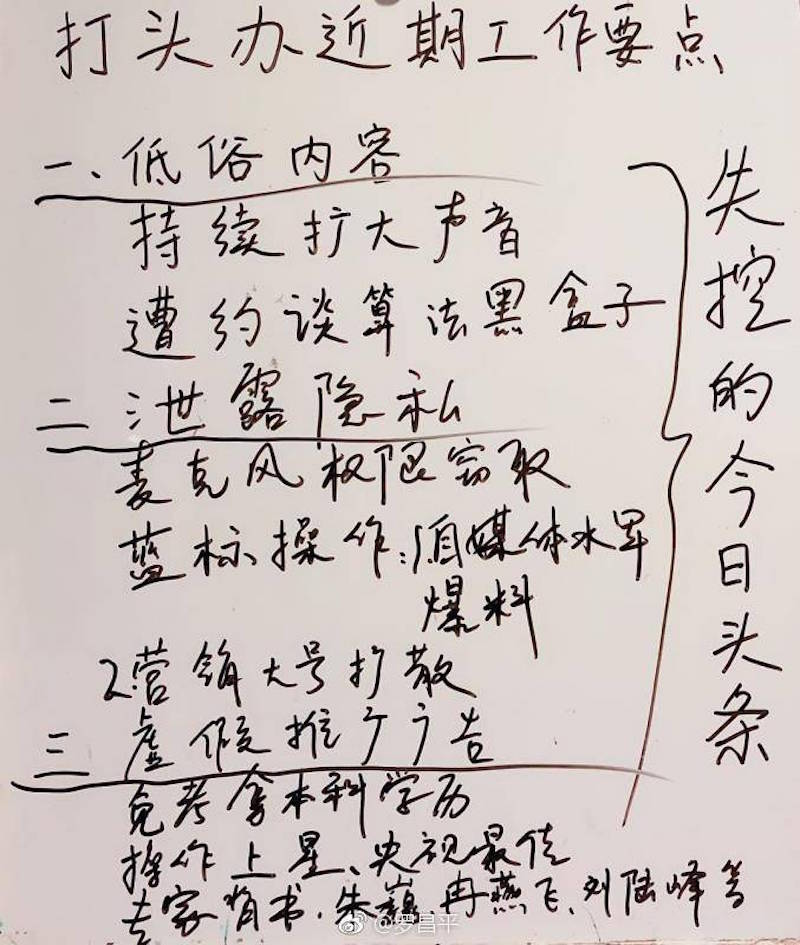 打头办近期工作要点
一、低俗内容
持续扩大声音
遭约谈算法黑盒子
二 泄露隐私
麦克风权限窃取
蓝标操作:1自媒体水军
爆料
2.营销大号扩散
三 虚假推广广告
免考拿本科学历
操作上星、央视最佳
专家背书.朱巍.冉燕飞、刘陆峰等
失控的今日头条
@罗昌平